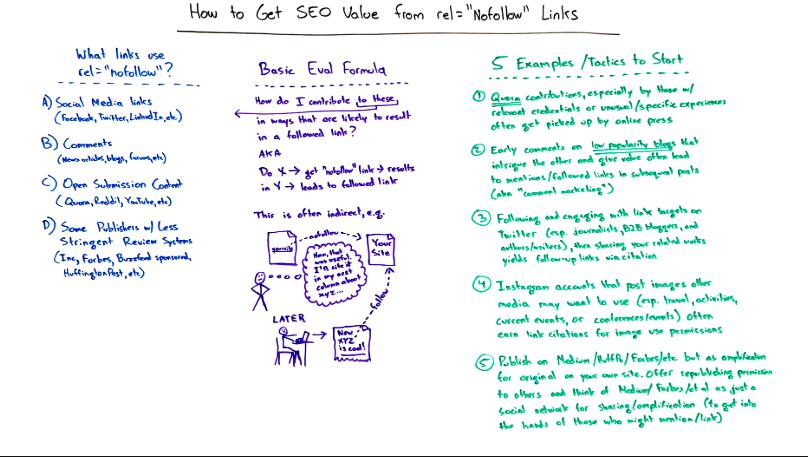 How to Get SEO Value from rel="Nofollow" Links
What links use
rel="nofollow"?
A) Social Media links
(Facebook, Twitter, LinkedIn, etc.)
B) Comments
(News articles, blogs, forums, etc)
C) Open Submission Content
(Quora, Reddit, YouTube, etc)
D) Some Publishers w/ Less
Stringent Review Systems
(Inc, Forbes, Buzzfeed sponsored,
HuffingtonPost, etc)
Basic Eval Formula
How do I contribute to these,
in ways that are likely to result
in a followed link?
AKA
Do X → get "nofollow" link → results
in Y → leads to followed link
This is often indirect, e.g.
nofollow
Your
Site
Hmm, that
was useful.
I'll cite it
in my next
column about
xyz...
follow
LATER
New
XYZ
is cool!
5 Examples/Tactics to Start
1 Quora contributions, especially by those w/
relevant credentials or unusual/specific experiences
often get picked up by online press
2 Early comments on low popularity blogs that
intrigue the other and give value often lead
to mentions/followed links in subsequent posts
(aka "comment marketing")
3 Following and engaging with link targets on
Twitter (esp. journalists, B2B bloggers, and
authors/writers), then sharing your related works
yields follow-up links via citation
4 Instagram accounts that post images other
media may want to use (esp. travel, activities,
current events, or conferences/events) often
earn link citations for image use permissions
5 Publish on Medium/HuffPo/Forbes/etc but as amplification
for original on your own site. Offer republishing permission
to others and think of Medium/Forbes/et al as just a
social network for sharing/amplification (to get into
the hands of those who might mention/link)